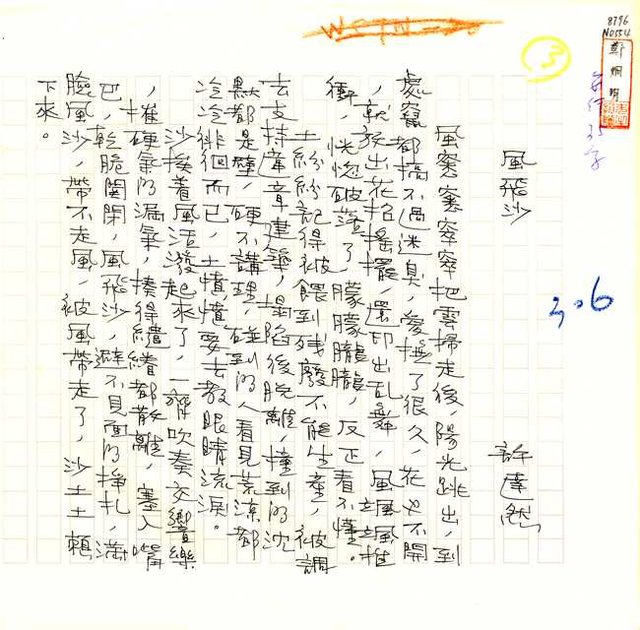 8796
NO554
鄭炯明
3
3.6
風飛沙
許達然
風窸窸窣窣把雲掃走後，陽光跳出，到
處竄都搞不過迷臭，愛撫了很久，花也不開
，就放出花招搖擺，還印出乱舞，風颯颯推
衝，恍惚破落了朦朦朧朧，反正看不懂。
土紛紛記得被餵到殘廢不能生產，被調
去支持違章建築，塌陷後脫離，撞到的沈
默都是壁，硬不講理，碰到的人看見荒涼都
冷冷徘徊而已，土憤憤要去教眼睛流淚。
沙挨着風活潑起來了，一齊吹奏交響樂
，摧硬氣的漏氣，揍得繾綣都散離，塞入嘴
巴，乾脆関閉，風飛沙，避不見面的掙扎，滿
臉風沙，帶不走風，被風帶走了，沙土土賴
下來。